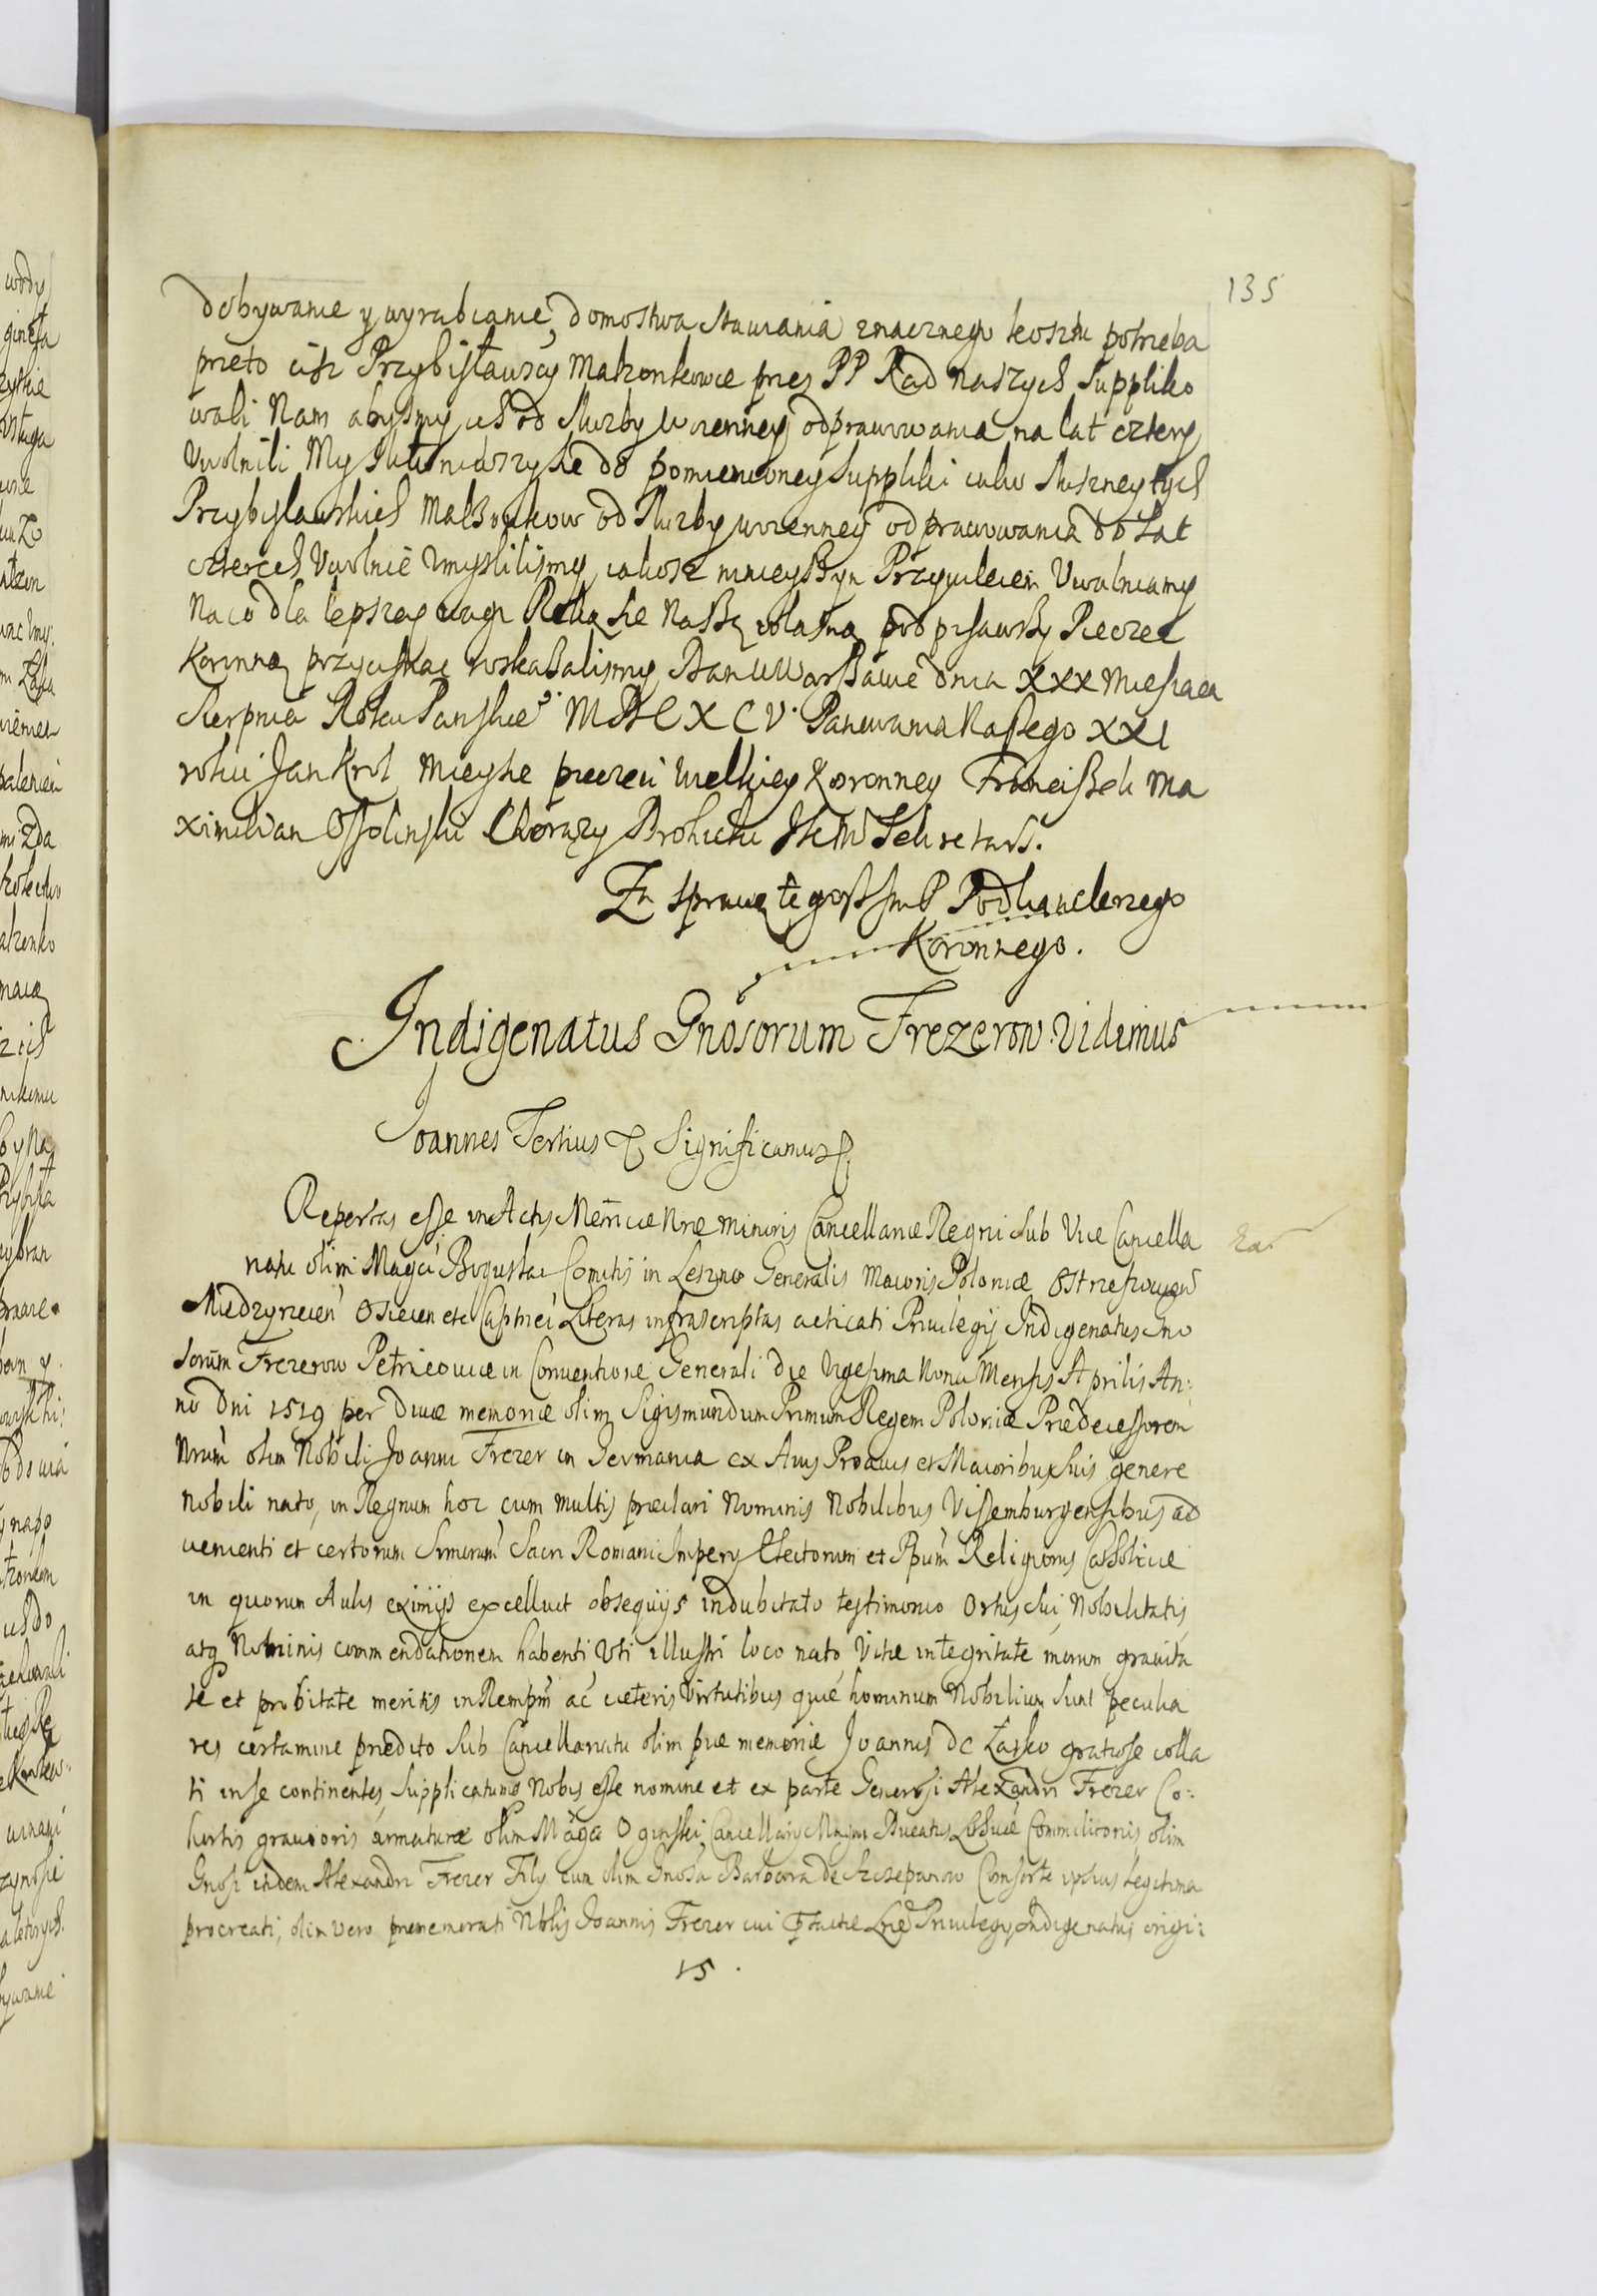 135
dobywanie y wyrabianie, domostwa stawiania znacznego kosztu potrzeba
przeto cisz Przybisławscy Małzonkowie przes PP Rad naszych Suppliko
wali Nam abysmy ich od słuzby woienney odprawowania na lat cztery
Uwolnili My skłoniwszy sie do pomienioney Suppliki iako słuszney tych
Przybysławskich Małzonkow od słuzby woienney odprawowania do Lat
czterech Uwolnic Umyslilismy, iakosz ninieyszym Przywileiem Uwalniamy
Na co dla lepszey wagi Ręką sie Naszą własną podpisawszy Pieczęc
Koronną przycisnąc roskazalismy, Dan w Warszawie dnia XXX Miesiaca
Sierpnia Roku Panskiego MDCXCV. Panowania Naszego XXI
roku Jan Krol Mieysce pieczęci wielkiey Koronney Franciszek Ma
ximilian Ossolinski Chorązy Drohicki JKM Sekretarz.
Za sprawą tegosz JmP Podkanclerzego
Koronnego.
Indigenatus Gnosorum Frezerow Vidimus
Joannes Tertius Significamus
Repertas esse in Actis Metricae Nrae minoris Cancellariae Regni sub Vice Cancella
riatu olim Magci Boguslai Comitis in Leszno Generalis Maioris Poloniae Ostrzeszovien
Miedzyrzecen Osiecen etc Capitnei Literas infrascriptas acticati Privilegij Indigenatus Gno
sorum Frezerow Petricoviae in Conventione Generali die Vigesima Nona Mensis Aprilis An:
no Dni 1519 per Divae memoriae olim Sigismundum Primum Regem Poloniae Praedecessorem
Nrum olim Nobili Joanni Frezer in Germania ex Avis Proavis et Maioribus suis genere
Nobili nato, in Regnum hoc cum multis praeclari Nominis Nobilibus Vissemburgensibus ad
venienti et certorum Srmorum Sacri Romani Impery Electorum et Ppum Religionis Catholicae
in quorum Aulis eximijs excelluit obsequijs indubitato testimonio Ortus sui, Nobilitatis,
atq Nominis commendationem habenti Uti illustri loco nato, Vitae integritate, morum gravita
te et probitate meritis in Rempm ac caeteris Virtutibus quae hominum Nobilium sunt peculia
res certamine praedito sub Cancellariatu olim piae memoriae Joannis de Lasko gratiose colla
ti in se continentes, Supplicatumq Nobis esse nomine et ex parte Generosi Alexandri Frezer Co:
hortis gravioris armaturae olim Magci Oginski Cancellarij Magni Ducatus Lithuae Commilitonis olim
Gnosi itidem Alexandri Frezer Filij cum olim Gnosa Barbara de Szczepanow Consorte ipsius legitima
procreati, olim vero praememorati Nblis Joannis Frezer cui pfactae Lrae Privilegij Indigenatus origi:
15.